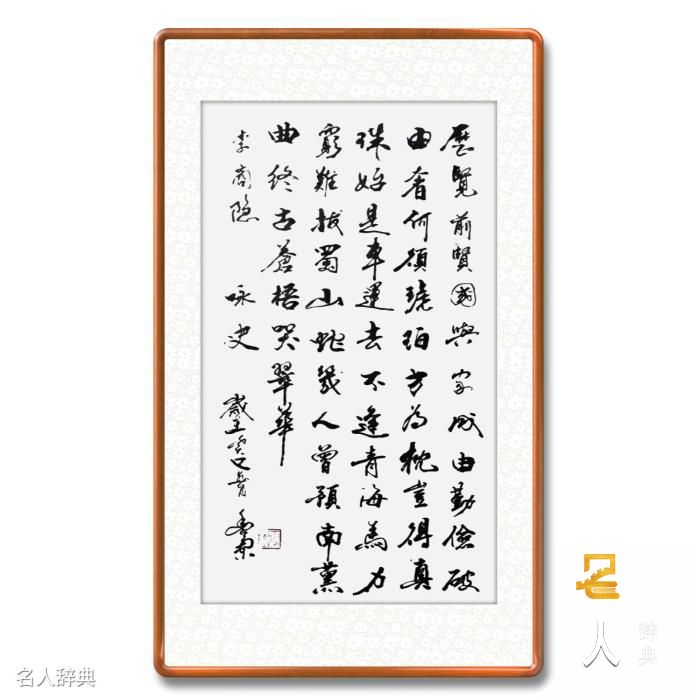 歷覽前賢國與家成由勤儉破
由奢何須琥珀方為枕豈得真
珠始是車運去不逢青海馬力
窮難拔蜀山蛇幾人曾預南薰
曲終古蒼梧哭翠華
李商隐 咏史
歲在癸
名人辞典
名人辞典